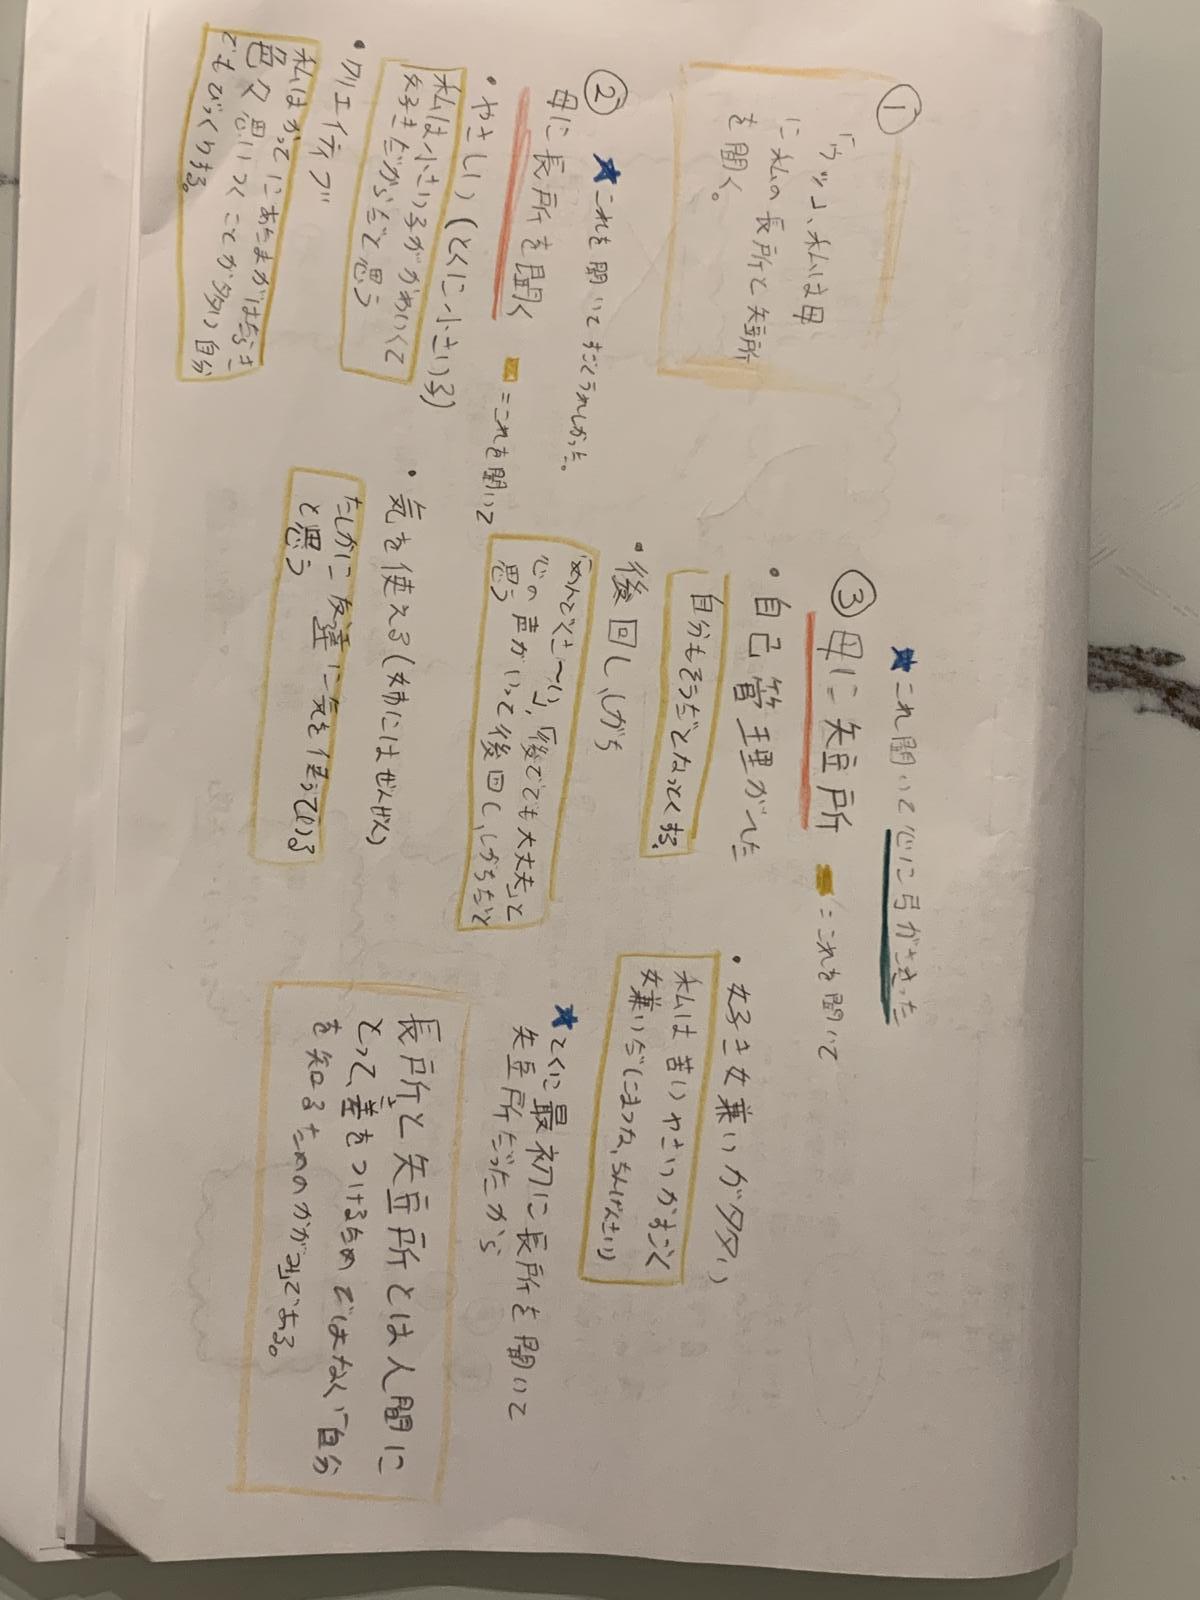 ①
「ウッ」、私は母
に私の長所と短所
を聞く。
②
★これを聞いてすごくうれしかった。
母に長所を聞く
■=これを聞いて
・やさしい(とくに小さい子)
私は小さい子がかわいくて
好きだからだと思う
・クリエイティブ
私はかってにあたまがはたらき
色々思いつくことが多い 自分
でもびっくりする。
・気を使える(姉にはぜんぜん)
たしかに友達に気を使っている
と思う
③
★これ聞いて心に弓がささった
母に短所
■=これを聞いて
・自己管理がへた
自分もそうだとなっとくする。
・後回ししがち
「めんどくさ〜い」、「後ででも大丈夫」と
心の声がいって後回ししがちだと
思う
・好き嫌いが多い
私は苦いやさいがすごく
嫌いだ(にまつな、ちんげんさい)
★とくに最初に長所を聞いて
短所だったから
長所と短所とは人間に
とって、差をつけるためではなく「自分
を知るためのかがみ」である。